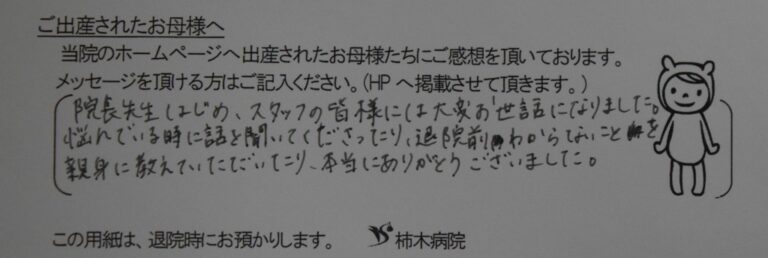 ご出産されたお母様へ
当院のホームページへ出産されたお母様たちにご感想を頂いております。
メッセージを頂ける方はご記入ください。(HPへ掲載させて頂きます。)
院長先生はじめ、スタッフの皆様には大変お世話になりました。
悩んでいる時に話を聞いてくださったり、退院前わからないことを
親身に教えていただいたり、本当にありがとうございました。
この用紙は、退院時にお預かりします。 柿木病院